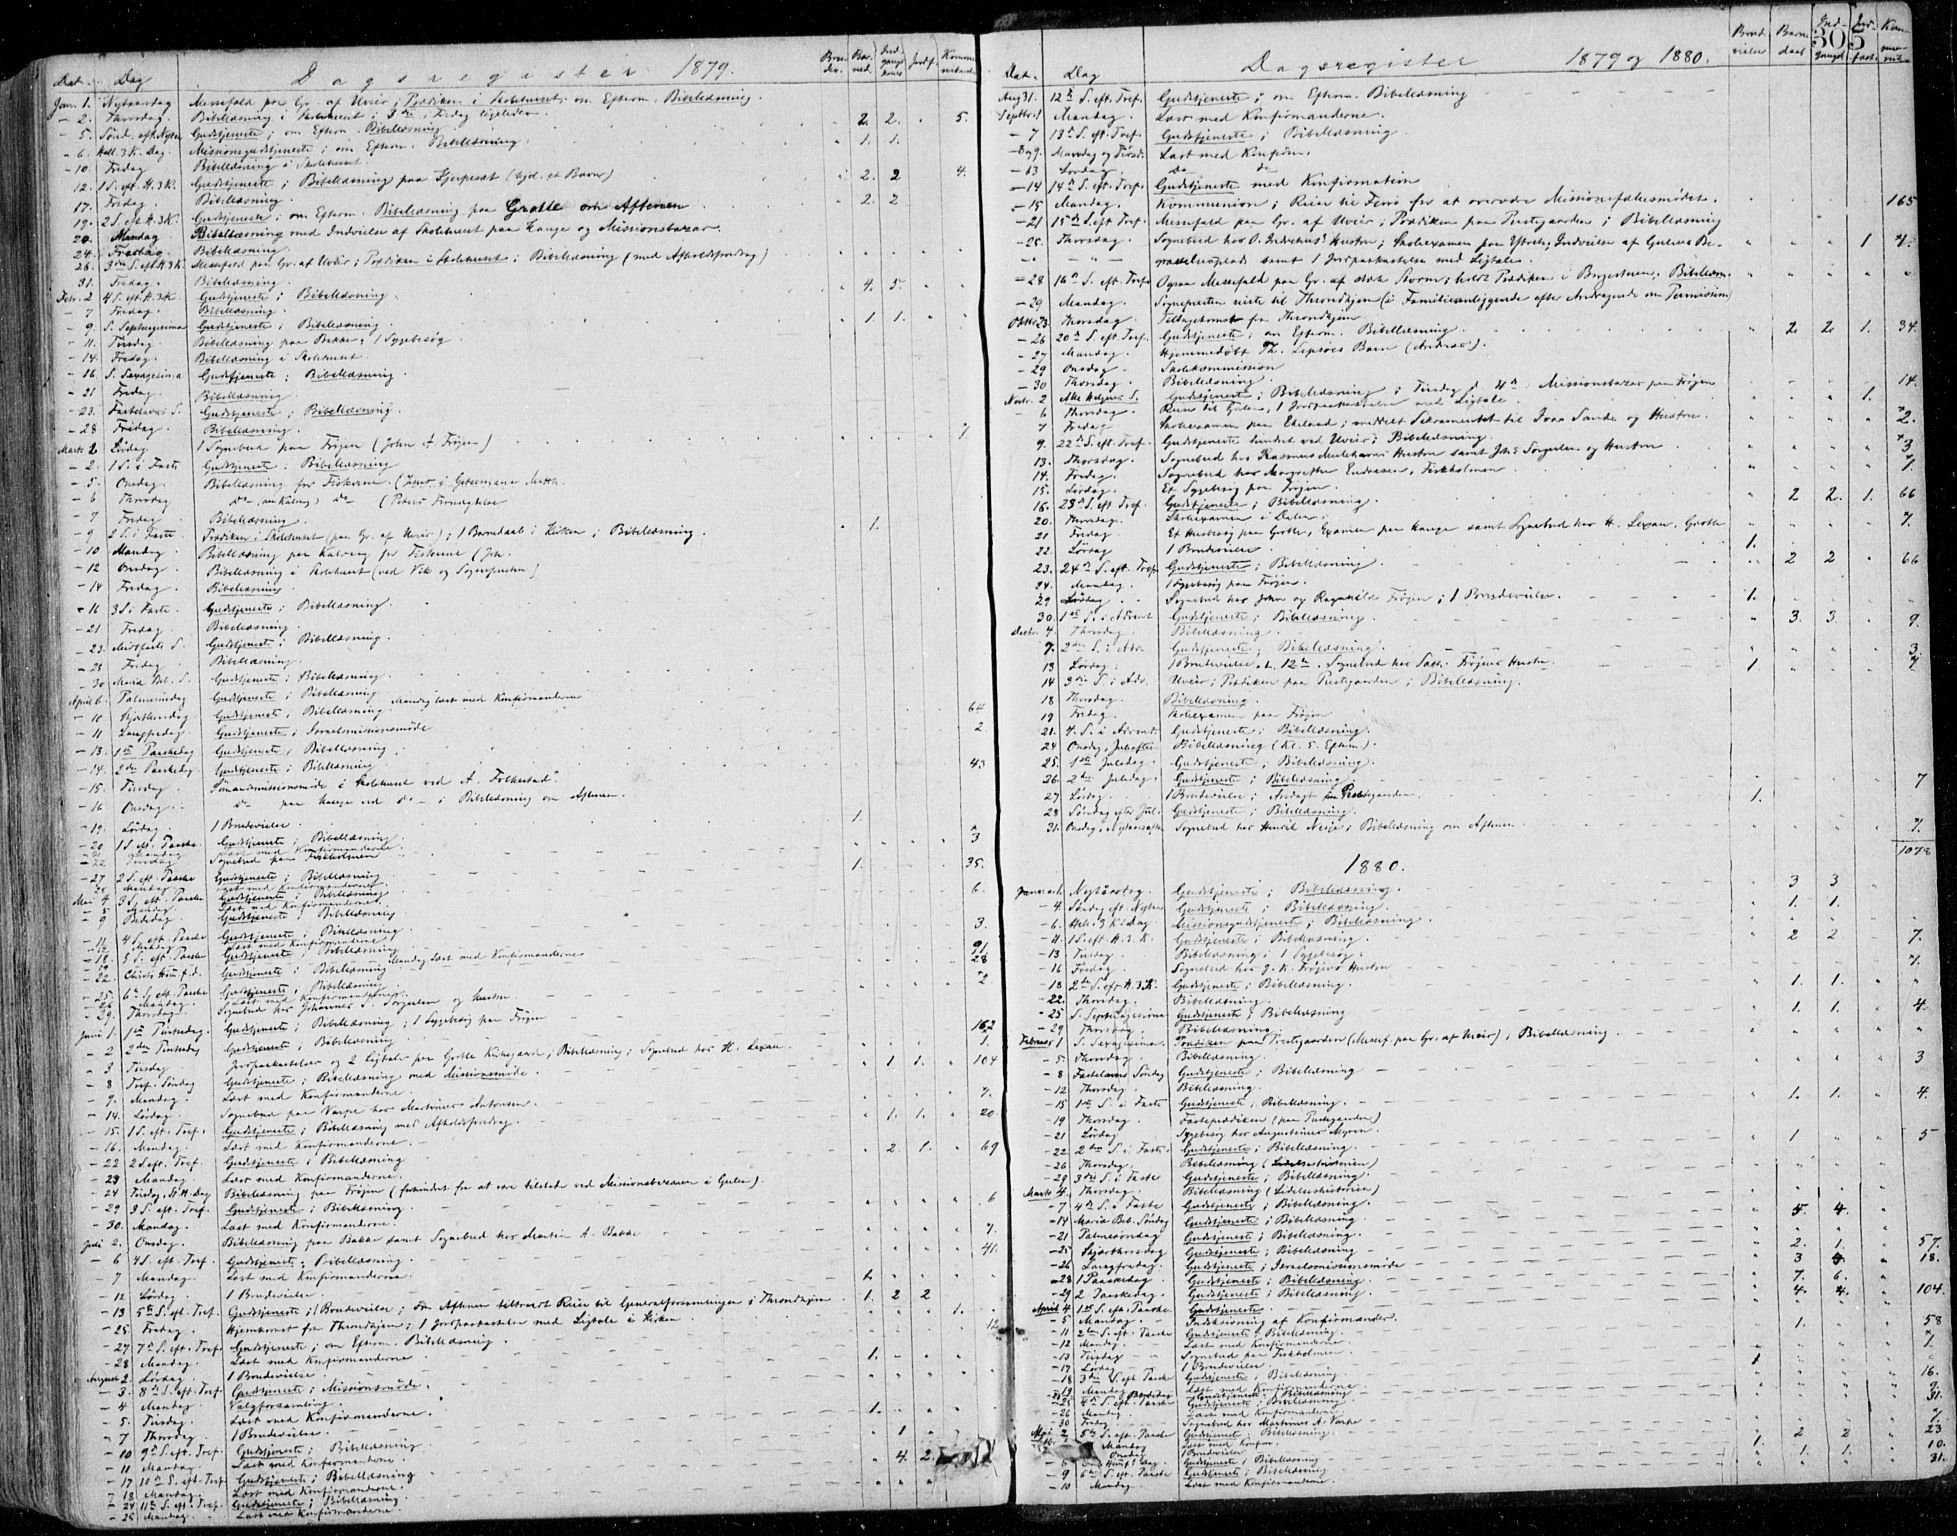 Dagsregister 1879.
Dat. Dag
Jan. 1. Nytaarsdag Messefald paa Gr. af Uveir; Prædiken i Skolehuset; om Efterm. Bibellæsning.
- 2. Thorsdag. Bibellæsning i Skolehuset; 3die, Fredag ligeledes. 2. 2. 5.
- 5. Sønd. eft. Nytaar Gudstjeneste; om Efterm. Bibellæsning
- 6. Hell. 3 K. Dag. Missionsgudstjeneste; om Efterm. Bibellæsning. 1. 1.
- 10. Fredag Bibellæsning i Skolehuset.
12. 1 S. eft. H. 3 K. Gudstjeneste; Bibellæsning paa 2. 2 4.
17. Fredag Bibellæsning.
19. 2 S. eft H. 3 K. Gudstjeneste; om Efterm. Bibellæsning paa Grotle om Aftenen 2. 2
20. Mandag Bibellæsning med Indvielse af Skolehuset paa Hauge og Missionsbazar.
24. Fredag. Bibellæsning
26. 3die S. eft H. 3 K. Messefald paa Gr. af Uveir; Prædiken i Skolehuset; Bibellæsning (med Afholdsforedrag)
31. Fredag. Bibellæsning.
Febr. 2 4 S. eft. H. 3 K. Gudstjeneste; Bibellæsning. 4. 5.
- 7 Fredag. Bibellæsning.
- 9. S. Septuagesima Gudstjeneste; Bibellæsning. 1. 1.
- 11. Tirsdag. Bibellæsning paa Bakke; 1 Sygebesøg
- 14. Fredag. Bibellæsning i Skolehuset.
- 16 S. Sexagesima Gudstjeneste; Bibellæsning.
- 21 Fredag Bibellæsning.
- 23. Fastelavns S. Gudstjeneste; Bibellæsning.
- 28 Fredag. Bibellæsning.
Marts Lördag 1 Sognebud paa Frøjen (John A Frøjen)
- 2. 1 S. i Faste Gudstjeneste; Bibellæsning
- 5. Onsdag. Bibellæsning for Fiskerne (Jesus i Getsemane Matth.
- 6 Thorsdag do do (Peters Fornegtelse
- 7 Fredag Bibellæsning.
- 9 2 S. i Faste Prædiken i Skolehuset (paa Gr. af Uveir); 1 Barnedaab i Kirken; Bibellæsning. 1.
- 10 Mandag Bibellæsning paa Kalvaag for Fiskerne (Joh.
- 12 Onsdag. Bibellæsning i Skolehuset (ved Vik og Sognepresten)
- 14 Fredag. Bibellæsning
- 16 3 S. i Faste. Gudstjeneste; Bibellæsning
- 21 Fredag. Bibellæsning.
- 23. Midfaste S. Gudstjeneste; Bibellæsning.
- 28 Fredag Bibellæsning
- 30 Maria Beb. S. Gudstjeneste; Bibellæsning.
April 6. Palmesøndag Gudstjeneste; Bibellæsning Mandag læst med Konfirmanderne
- 10 Skjærthorsdag. Gudstjeneste; Bibellæsning 64
- 11 Langfredag Gudstjeneste; Israelsmissionsmøde 2
- 13. 1ste Paaskedag Gudstjeneste; Bibellæsning
- 14. 2den Paaskedag Gudstjeneste; Bibellæsning 43
- 15. Tirsdag. Sømandsmissionsmøde i Skolehuset ved A. Folkestad.
- 16 Onsdag. do paa Hauge ved do; Bibellæsning om Aftenen.
- 19. Lördag. 1 Brudevielse 1.
- 20 1 S. eft. Paaske Gudstjeneste; Bibellæsning 3
Mandag Læst med Konfirmanderne
- 22 Tirsdag Sognebud paa Fiskholmen
- 27 2 S. eft Paaske Gudstjeneste; Bibellæsning 1. 35.
Mandag Læst med Konfirmanderne
Mai 4 3 S. eft. Paaske Gudstjeneste; Bibellæsning 6.
- 5 Mandag Læst med Konfirmanderne
- 9 Bededag Gudstjeneste; Bibellæsning 3.
- 11 4 S. eft. Paaske Gudstjeneste; Bibellæsning
- 12 Mandag Læst med Konfirmanderne
- 18. 5 S. eft Paaske Gudstjeneste; Bibellæsning 91
- 22. Christi Him. f. d. Gudstjeneste; Bibellæsning Mandag Læst med Konfirmanderne 28
- 25 6te S. eft Paaske Gudstjeneste; Bibellæsning 2
- 26 Mandag Læst med Konfirmanderne
- 29. Thorsdag Sognebud hos Johannes S. Sørgulen og hustru
Juni 1. 1ste Pintsedag. Gudstjeneste; Bibellæsning; 1 Sygebesøg paa Frøjen 162
- 2 2den Pintsedag Gudstjeneste; Bibellæsning.
- 3 Tirsdag Jordpaakastelse og 2 Ligtaler paa Grotle Kirkegaard; Bibellæsning; Sognebud hos H. Lexau. 1.
- 8 Tref. Søndag Gudstjeneste; Bibellæsning med Missionsmøde. 1 1. 104
- 9. Mandag. Læst med Konfirmanderne
- 14. Lördag. Sognebud paa Varpe hos Martinus Antonsen 7.
- 15. 1 S. eft. Tref. Gudstjeneste; Bibellæsning med Afholdsforedrag. 1. 1. 20
- 16. Mandag Læst med Konfirmanderne.
- 22 2 S eft. Tref. Gudstjeneste; Bibellæsning 2. 1. 69
- 23 Mandag. Læst med Konfirmanderne.
- 24 Tirsdag, St. H. Dag Bibellæsning paa Frøjen (forhindret fra at være tilstede ved Missionsbazaren i Gulen)
- 29 3 S. eft. Tref. Gudstjeneste; Bibellæsning 6
- 30. Mandag. Læst med Konfirmanderne.
Juli 2. Onsdag. Bibellæsning paa Bakke samt Sognebud hos Martin A. Bakke 7.
- 6 4 S. eft. Tref. Gudstjeneste; Bibellæsning. 41.
- 7 Mandag. Læst med Konfirmanderne.
- 12 Lördag. 1 Brudevielse. 1.
- 13 5te S. eft. Tref. Gudstjeneste; 1 Brudevielse; om Aftenen tiltraadt Reise til Generalforsamlingen i Throndhjem 1. 2 2
- 25. Fredag. Hjemkomst fra Throndhjem; 1 Jordpaakastelse med Ligtale i Kirken 1.
- 27 7de S. eft. Tref. Gudstjeneste; om Efterm. Bibellæsning. 12
- 28 Mandag. Læst med Konfirmanderne
August 2. Lördag. 1 Brudevielse. 1.
- 3. 8de S. eft. Tref. Gudstjeneste; Missionsmøde.
- 4 Mandag. Valgforsamling.
- 5. Tirsdag. Læst med Konfirmanderne.
- 7 Thorsdag 1 Brudevielse. 1.
- 10 9de S. eft. Tref. Gudstjeneste; Bibellæsning. 1
- 11 Mandag. Læst med Konfirmanderne.
- 17 10de S. eft. Tref. Gudstjeneste; Bibellæsning 4. 2.
- 18 Mandag. Læst med Konfirmanderne.
- 24 11te S. eft. Tref. Gudstjeneste; Bibellæsning.
- 25 Mandag. Læst med Konfirmanderne.
305
Dagsregister 1879 og 1880.
Dat. Dag
Aug 31. 12te S. eft. Tref. Gudstjeneste; om Efterm. Bibellæsning
Septbr. 1 Mandag. Læst med Konfirmanderne.
- 7 13de S. eft. Tref. Gudstjeneste; Bibellæsning.
- 8 og 9. Mandag og Tirsd. Læst med Konfirm.
- 13 Lördag. do do
- 14 14de S. eft. Tref. Gudstjeneste med Konfirmation
- 15 Mandag. Kommunion; Reise til Florø for at overvære Missionsfællesmødet. 165
- 21 15de S. eft Tref. Messefald paa Gr. af Uveir; Prædiken paa Prestegaarden; Bibellæsning
- 25. Thorsdag. Sognebud hos O. Indrehus' Hustru; Skoleexamen paa Ytreh.; Indvielse af Gulens Be- 1 7.
gravelsesplads samt 1 Jordpaakastelse med Ligtale.
- 28 16de S. eft. Tref. Ogsaa Messefald paa Gr. af stærk Storm; holdt Prædiken i Borgestuen; Bibellæsn.
- 29 Mandag. Sognepresten reiste til Throndhjem (i Familieanliggende efter Andragende om Permission)
Oktbr 23. Thorsdag. Tilbagekomst fra Throndhjem
- 26 20de S. eft. Tref. Gudstjeneste; om Efterm. Bibellæsning. 2. 2 1. 34.
- 27 Mandag. Hjemmedøbt Th. Lepsøes Barn (Andreas).
- 29 Onsdag. Skolekommission
- 30 Thorsdag. Bibellæsning.
Novbr. 2 Alle Helgens S. Gudstjeneste; Bibellæsning; Tirsdag d. 4de Missionsbazar paa Frøjen 14.
- 6 Thorsdag. Reise til Gulen, 1 Jordpaakastelse med Ligtale. 1.
7 Fredag Skoleexamen paa Endal; meddelt Sakramentet til Ivar Sande og Hustru 2.
9. 22de S. eft. Tref. Gudstjeneste hindret ved Uveir; Bibellæsning.
13. Thorsdag. Sognebud hos Rasmus Hustru samt Johs Sørgulen og Hustru 3
14. Fredag. Sognebud hos Margrethe Endresen, Fiskholmen 1.
15. Lördag. Et Sygebesøg paa Frøjen.
16. 23de S. eft Tref. Gudstjeneste; Bibellæsning. 2 2. 1. 66
20. Thorsdag. Skoleexamen i Dalen.
21 Fredag. Et Husbesøg paa Grotle, Examen paa Hauge samt Sognebud hos H. Lexau, Grotle 7.
22. Lördag 1 Brudevielse 1.
23. 24de S. eft. Tref. Gudstjeneste; Bibellæsning. 2 2 66
24. Mandag. 1 Sygebesøg paa Frøjen.
29 Lördag Sognebud hos John og Ragnhilde Frøjen; 1 Brudevielse. 1.
30. 1ste S. i Advent Gudstjeneste; Bibellæsning. 3. 3. 9.
Decbr. 4. Thorsdag. Bibellæsning.
7. 2den S. i Adv. Gudstjeneste; Bibellæsning. 3
13 Lördag. 1 Brudevielse d. 12te. Sognebud hos Frøjens Hustru. 1. 7.
14 3die S. i Adv. Uveir; Prædiken paa Prestegaarden; Bibellæsning.
18 Thorsdag. Bibellæsning.
19 Fredag. Skoleexamen paa Frøjen
21. 4. S. i Advent Gudstjeneste; Bibellæsning.
24 Onsdag, Juleaften Bibellæsning (Kl. 5. Efterm.).
25. 1ste Juledag. Gudstjeneste; Bibellæsning.
26. 2den Juledag. Gudstjeneste; Bibellæsning
27 Lördag. 1 Brudevielse; Andagt paa Prestegaarden. 1. 7
28 Søndag efter Jul. Gudstjeneste; Bibellæsning.
31. Onsdag, Nytaarsaften Sognebud hos Henrik Nesje; Bibellæsning om Aftenen 7.
1078
1880.
Januar 1. Nytaarsdag. Gudstjeneste; Bibellæsning. 3 3
- 4. Søndag eft. Nytaar Gudstjeneste; Bibellæsning. 1. 1.
- 6. Hell. 3 K. Dag. Missionsgudstjeneste; Bibellæsning.
- 11. 1 S. eft. H. 3. K. Gudstjeneste; Bibellæsning. 2 2 7.
- 13 Tirsdag. Bibellæsning; 1 Sygebesøg.
- 16 Fredag. Sognebud hos J. K. Frøjens Hustru 7.
- 18 2den S. eft. H. 3. K. Gudstjeneste; Bibellæsning. 1. 1.
- 22. Thorsdag. Bibellæsning.
- 25 S. Septuagesima Gudstjeneste; Bibellæsning 1. 1. 4.
- 29 Thorsdag. Bibellæsning
Februar 1 S. Sexagesima. Prædiken paa Prestegaarden (Messef. paa Gr. af Uveir); Bibellæsning
- 5 Thorsdag. Bibellæsning.
- 8 Fastelavns Søndag Gudstjeneste; Bibellæsning 3
- 12 Thorsdag. Bibellæsning.
- 15 1ste S. i Faste Gudstjeneste; Bibellæsning. 1. 1. 4.
- 19 Thorsdag. Fasteprædiken (paa Prestegaarden)
- 21 Lördag Sygebesøg hos Augustinus Myren.
- 22 2den S. i Faste. Gudstjeneste; Bibellæsning. 1 5
- 26 Thorsdag Bibellæsning (Lidelseshistorien)
- 29 3die S. i Faste Gudstjeneste; Bibellæsning
Marts 4. Thorsdag. Bibellæsning (Lidelseshistorien)
- 7 4de S. i Faste Gudstjeneste; Bibellæsning.
- 14 Maria Beb. Søndag Gudstjeneste; Bibellæsning. 5. 4.
- 21 Palmesøndag Gudstjeneste; Bibellæsning.
- 25 Skjærthorsdag Gudstjeneste; Bibellæsning. 2. 1. 57.
- 26 Langfredag. Gudstjeneste; Israelsmissionsmøde 3 18.
- 28 1 Paaskedag Gudstjeneste; Bibellæsning. 7. 6.
- 29 2 Paaskedag. Gudstjeneste; Bibellæsning. 4. 4. 104.
April 4 1ste S. eft. Paaske. Gudstjeneste.
- 5 Mandag. Indskrivning af Konfirmander.
- 11 2den S. eft. Paaske Gudstjeneste; Bibellæsning. 1. 58
- 12 Mandag. Læst med Konfirmanderne.
- 13 Tirsdag Sognebud paa Fiskholmen. 1
- 17 Lördag. 1 Brudevielse. 1
- 18 3die S. eft Paaske Gudstjeneste; Bibellæsning 16.
- 19 Mandag Læst med Konfirmanderne.
Bededag Gudstjeneste; Bibellæsning
- 25 4de S. eft. Paaske Gudstjeneste; Bibellæsning. 31.
- 26 Mandag. Læst med Konfirmanderne
- 30 Fredag Sognebud hos Martinus A. Varpe 7.
Mai 2 5te S. eft. Paaske Gudstjeneste; Bibellæsning. 2 2 23
Mandag Læst med Konfirm.
Onsdag 1 Brudevielse 1.
- 6 Himf. Dag. Gudstjeneste; Bibellæsning 1. 1. 10.
- 9 6te S. eft. Paaske Gudstjeneste; Bibellæsning 31.
- 10 Mandag. Læst med Konfirmanderne.